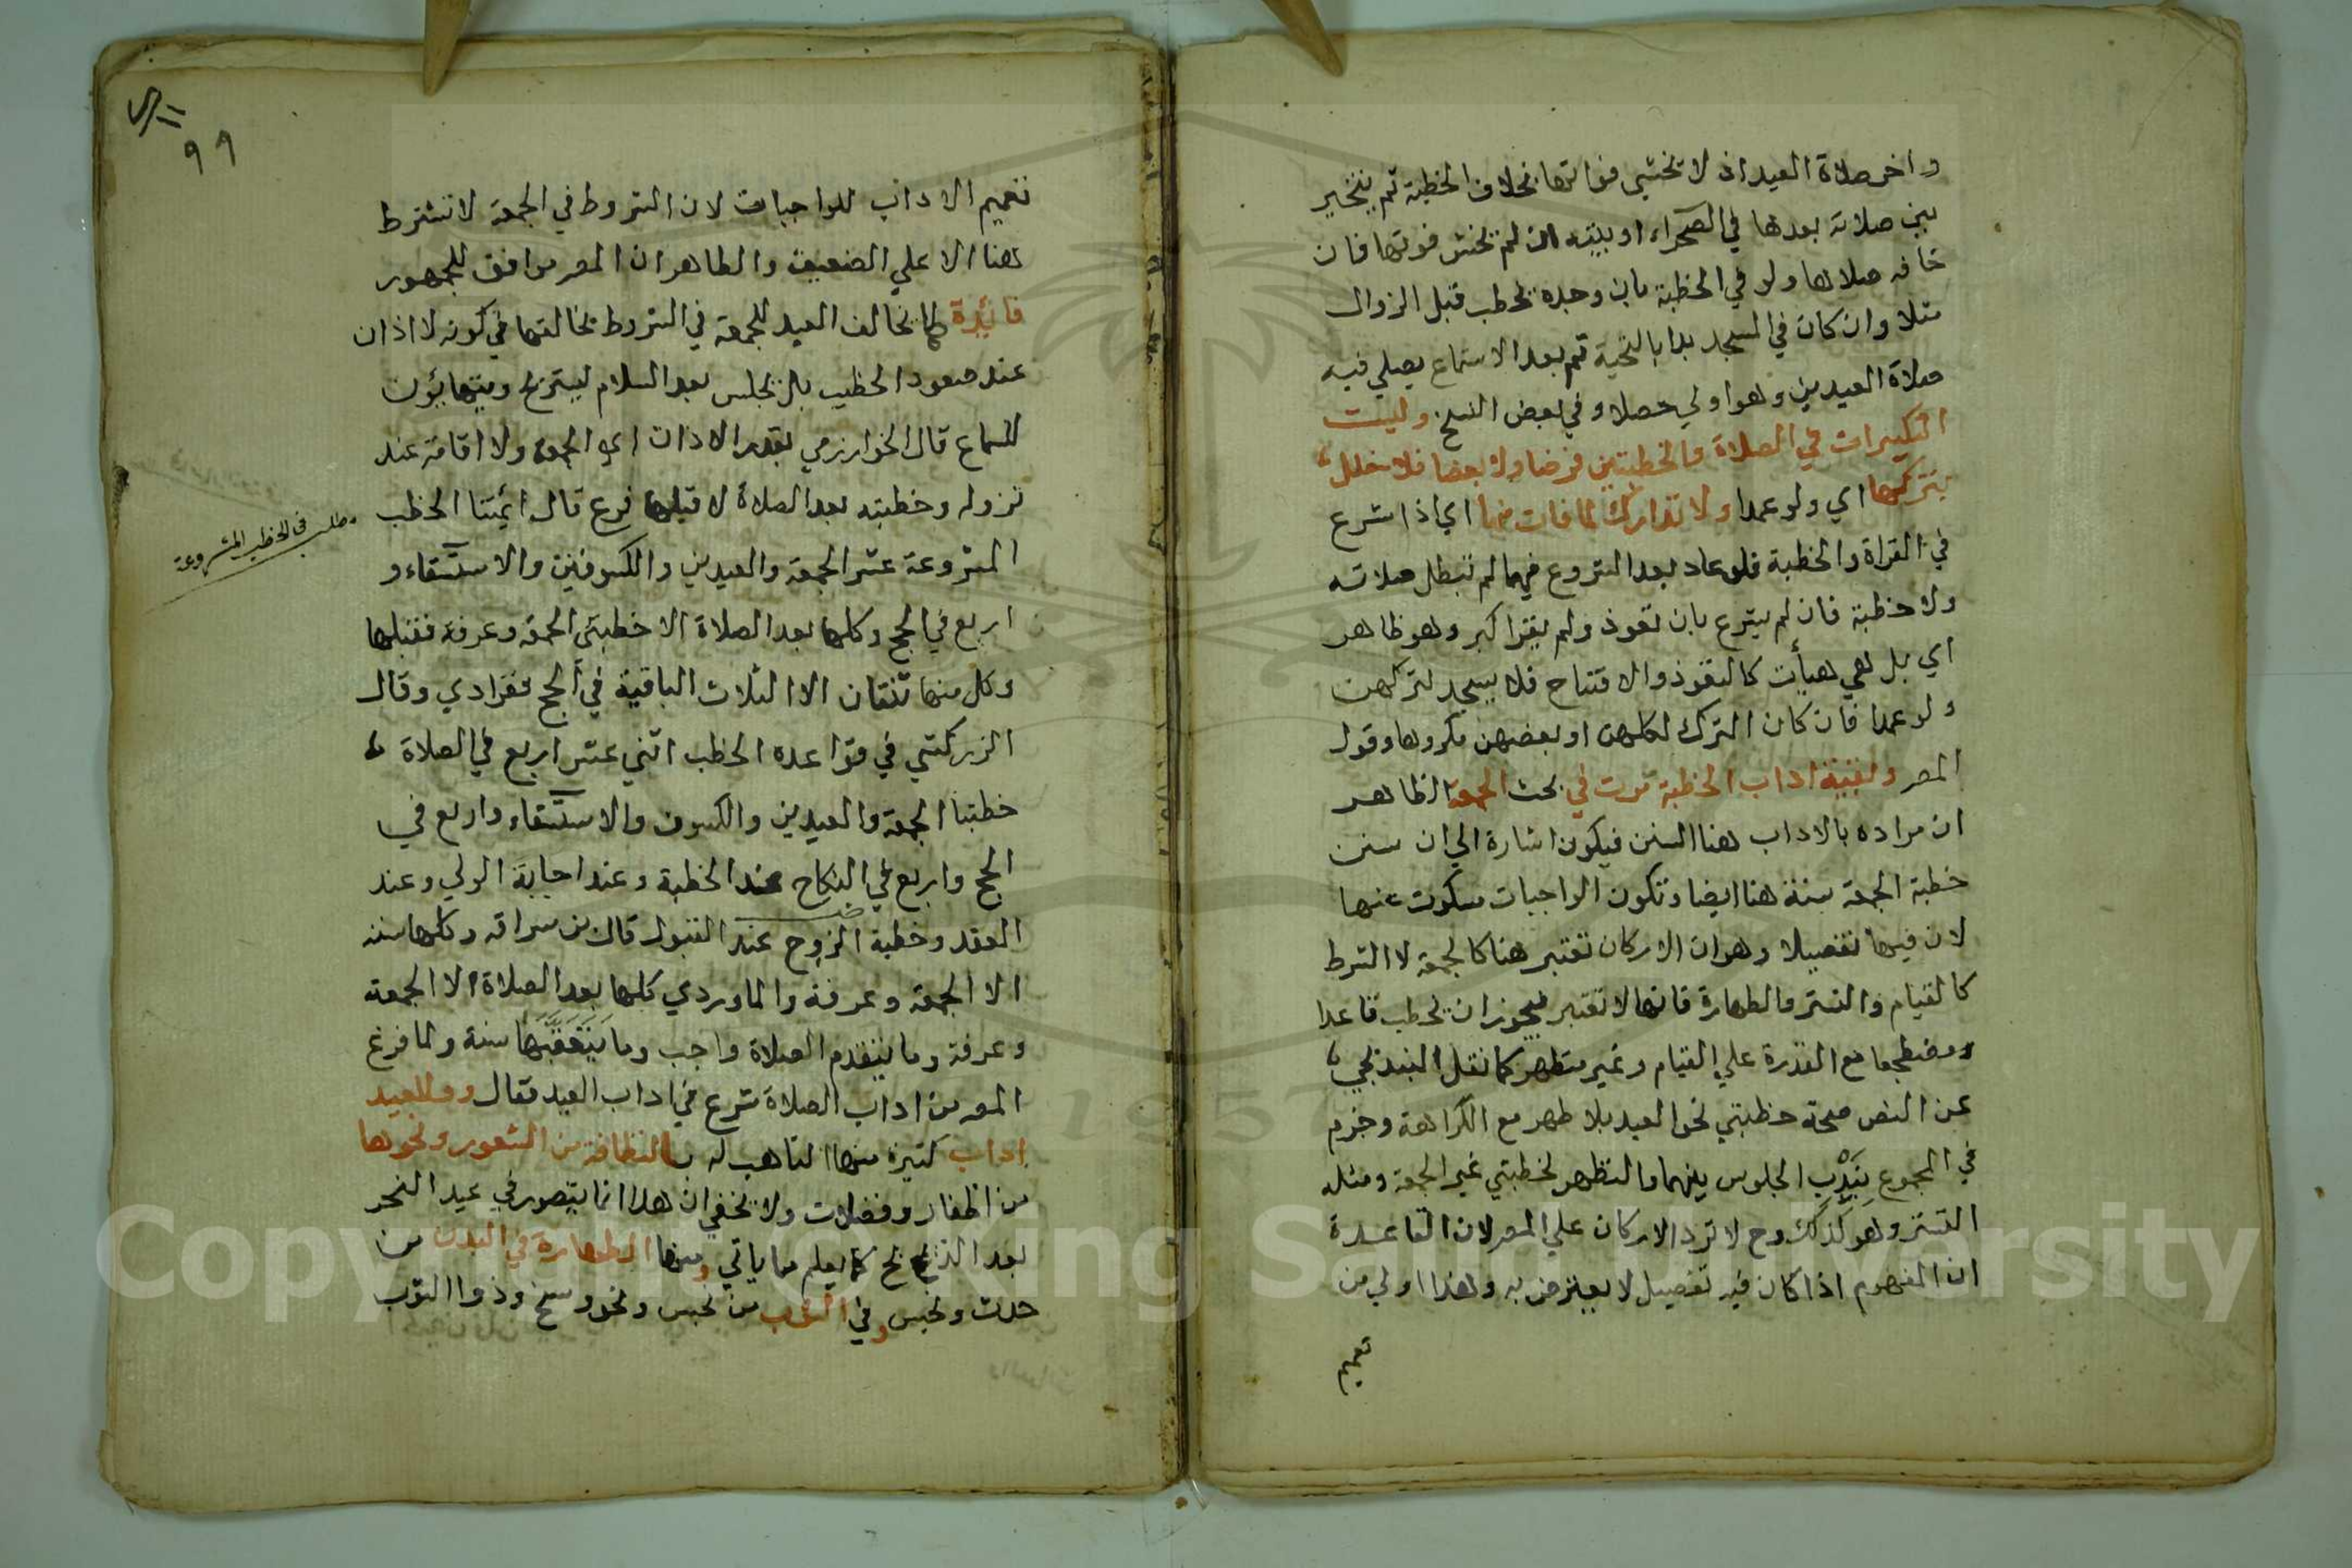 واخر صلاة العيد اذ لا تخشي فواتها بخلاف الخطبة ثم يتخير
بين صلاته بعدها في الصحراء او بيته ان لم تخش فوتها فان
خافه صلاها ولو في الخطبة بان وجده يخطب قبل الزوال
مثلا وان كان في المسجد بدا بالتحية ثم بعد الاستماع يصلي فيه
صلاة العيدين وهو اولي حصلا وفي بعض النسخ وليست
التكبيرات في الصلاة والخطبتين فرضا ولا بعضا فلا خلل
بتركها اي ولو عمدا ولا تدارك لما فات منها اي اذا شرع
في القراة والخطبة فلو عاد بعد الشروع فيهما لم تبطل صلاته
ولا خطبة فان لم يشرع بان تعوذ ولم يقرا كبر وهو ظاهر
اي بل هي هيأت كالتعوذ والافتتاح فلا يسجد لتركهن
ولو عمدا فان كان الترك لكلهن او بعضهن مكروها وقول
المصر وبقية اداب الخطبة مرت في بحث الجمعة الظاهر
ان مراده بالاداب هنا السنن فيكون اشارة الي ان سنن
خطبة الجمعة سنة هنا ايضا وتكون الواجبات مسكوت عنها
لان فيها تفصيلا وهو ان الاركان تعتبر هنا كالجمعة لا الشرط
كالقيام والتستر والطهارة فانها لا تعتبر فيجوز ان يخطب قاعدا
ومضطجعا مع القدرة علي القيام وغير متطهر كما نقل البندنجي
عن النص صحة خطبتي نحو العيد بلا طهر مع الكراهة وجزم
في المجموع بندب الجلوس بينهما والتطهر لخطبتي غير الجمعة ومثله
التستر وهو كذلك وح لا ترد الاركان علي المصر لان القاعدة
ان المفهوم اذا كان فيه تفصيل لا يعترض به وهذا اولي من
تعميم
٩٩
تعميم الاداب للواجبات لان الشروط في الجمعة لا تشترط
هنا الا علي الضعيف والظاهر ان المصر موافق للجمهور
فائدة كما تخالف العيد للجمعة في الشروط تخالفها في كونه لا اذان
عند صعود الخطيب بل يجلس بعد السلام ليستريح ويتهايؤن
للسماع قال الخوارزمي بقدر الاذان اي الجمعة ولا اقامة عند
نزوله وخطبته بعد الصلاة لا قبلها فرع قال ايمتنا الخطب
المشروعة عشر الجمعة والعيدين والكسوفين والاستسقاء و
اربع في الحج وكلها بعد الصلاة الا خطبتي الجمعة وعرفة فقبلها
وكل منها ثنتان الا الثلاث الباقية في الحج ففرادي وقال
الزركشي في قواعده الخطب اثني عشر اربع في الصلاة
خطبتا الجمعة والعيدين والكسوف والاستسقاء واربع في
الحج واربع في النكاح عند الخطبة وعند اجابة الولي وعند
العقد وخطبة الزوج عند القبول قال بن سراقه وكلها سنه
الا الجمعة وعرفة والماوردي كلها بعد الصلاة الا الجمعة
وعرفة وما يتقدم الصلاة واجب وما يتعقبها سنة ولما فرغ
المصر من اداب الصلاة شرع في اداب العيد فقال وللعيد
اداب كثيرة منها التاهب له بالنظافة من الشعور ونحوها
من اظفار وفضلات ولا يخفي ان هذا انما يتصور في عيد النحر
بعد الذبح كما يعلم مما ياتي ومنها الطهارة في البدن من
حدث ونجس وفي الثوب من نجس ونحو وسخ وذو الثوب
مطلب في الخطب المشروعة